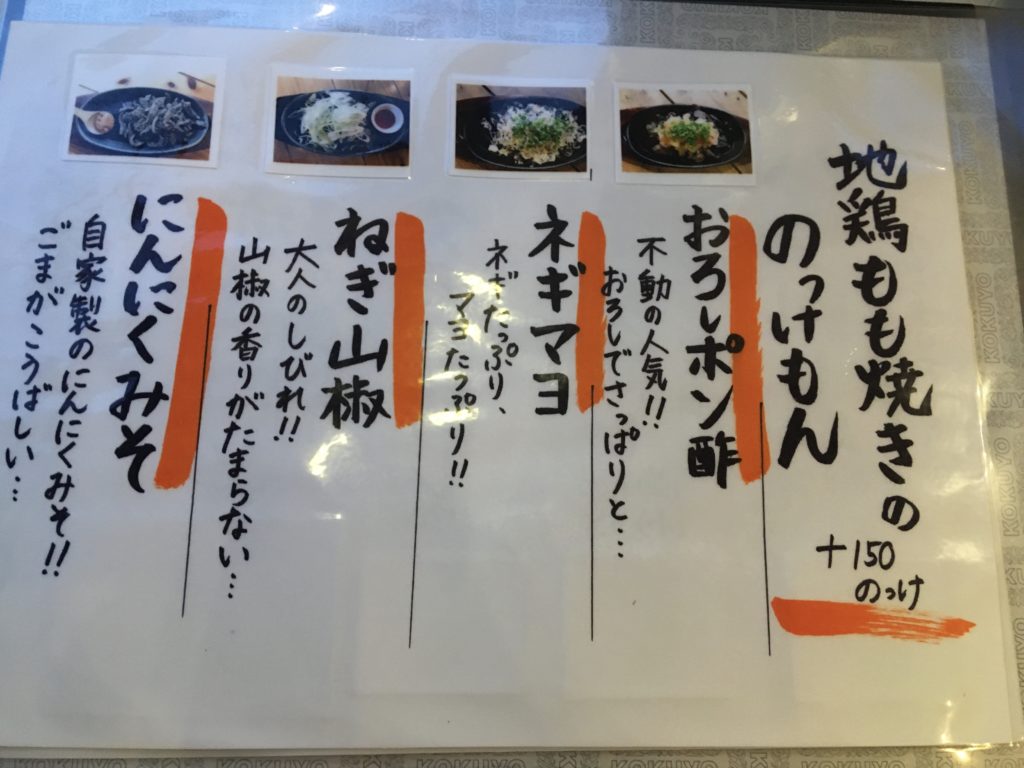 地鶏もも焼きの
のっけもん
+150
のっけ
おろしポン酢
不動の人気!!
おろしでさっぱりと…
ネギマヨ
ネギたっぷり、
マヨたっぷり!!
ねぎ山椒
大人のしびれ!!
山椒の香りがたまらない…
にんにくみそ
自家製のにんにくみそ!!
ごまがこうばしい…
KOKUYO
KOKUYO
KOKUYO
KOKUYO